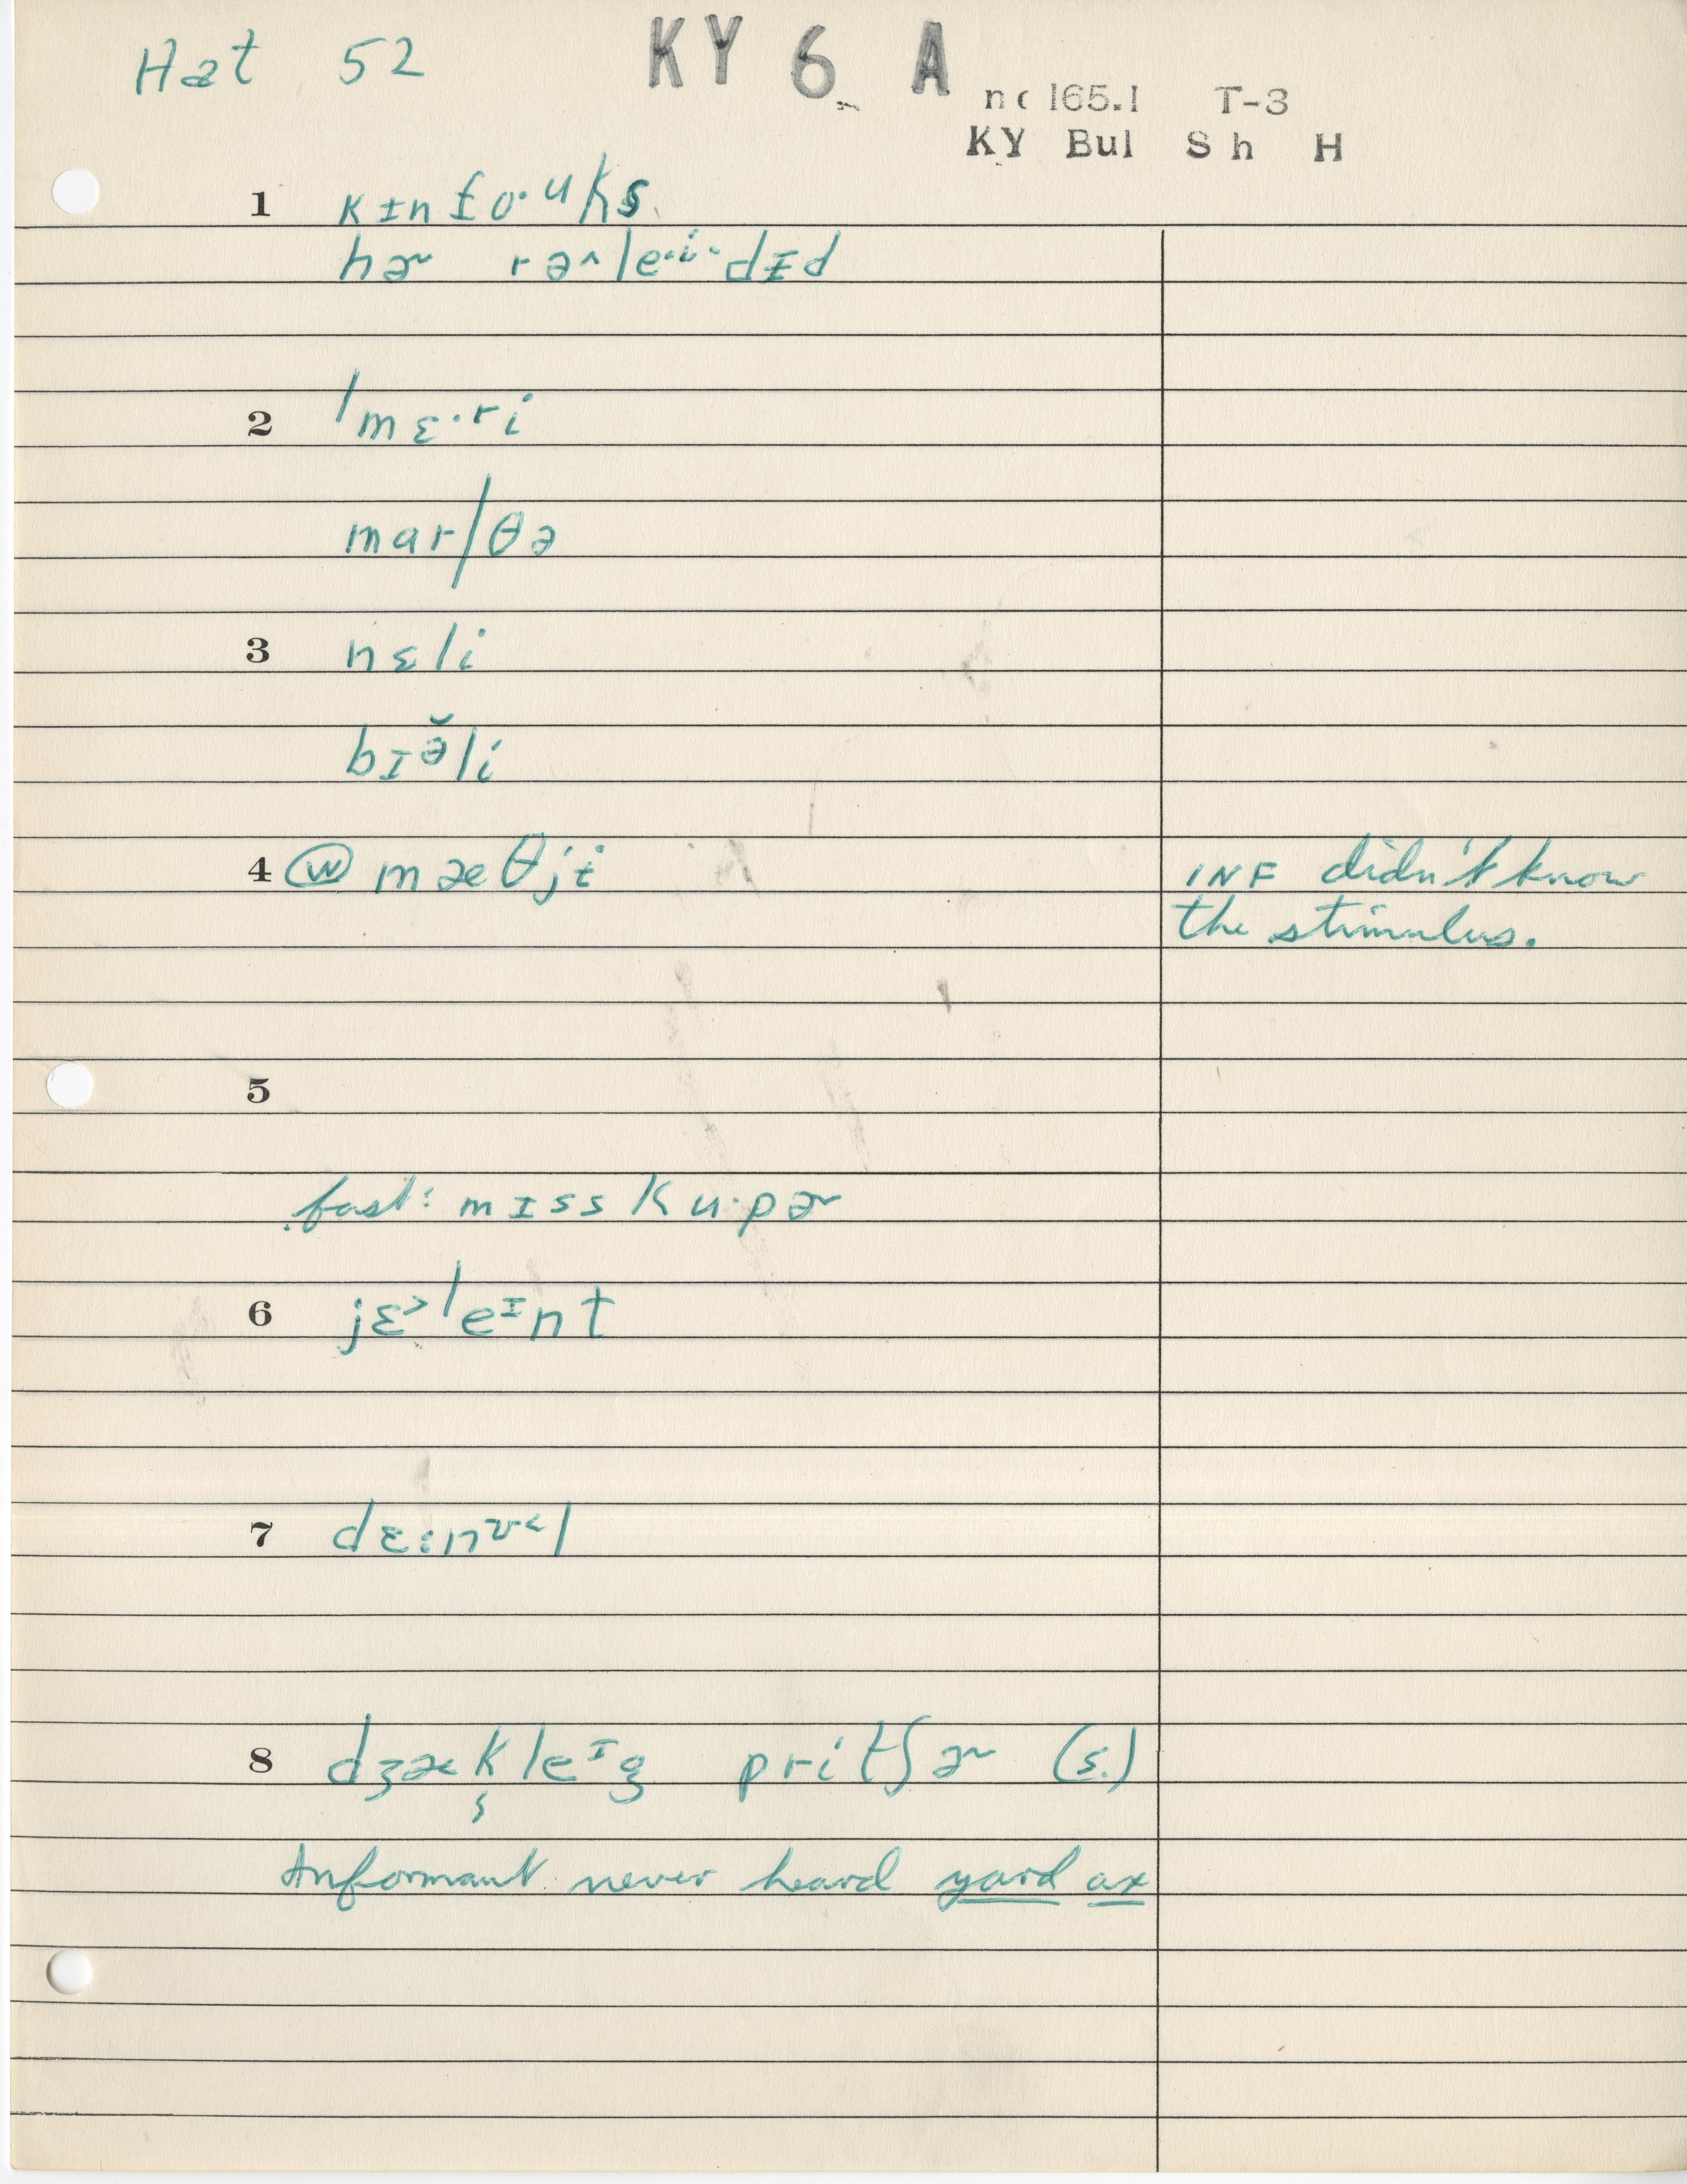 Hat 52 KY 6 A
nc 165.1 T-3
KY Bul Sh H
1 kɪnfo·ᵘks
hɚ rə^le·ⁱ·dɪd
2 'mɛ·ri
mar/θə
3 nɛli
bɪə̆li
4 ⓦ mæθjɨ INF didn't know
the stimulus.
5
fast: mɪss ku·pɚ
6 jɛ˃'leɪnt
7 dɛ:nʊ˂l
8 dʒækleɪg pritʃɚ (s.)
Informant never heard yard ax